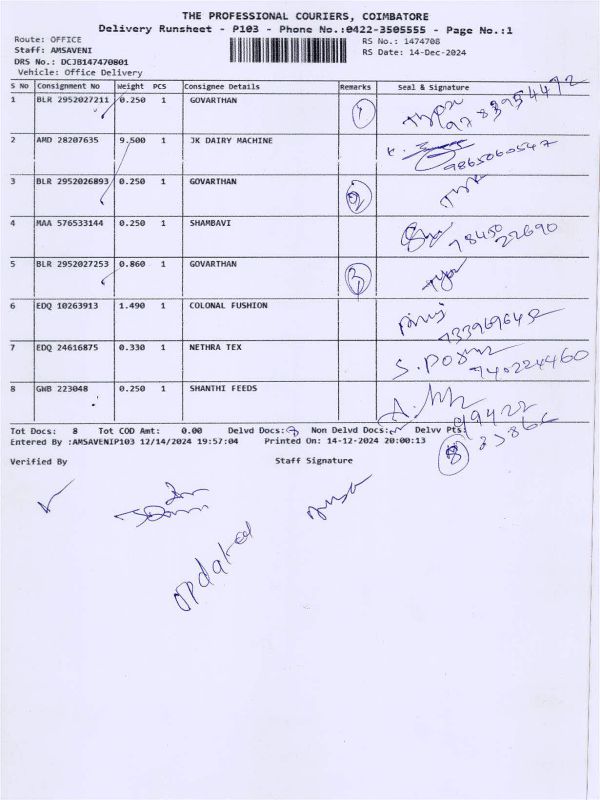 THE PROFESSIONAL COURIERS, COIMBATORE
Delivery Runsheet - P103 - Phone No.:0422-3505555 - Page No.:1
Route: OFFICE
Staff: AMSAVENI
DRS No.: DCJB147470801
Vehicle: Office Delivery
RS No.: 1474708
RS Date: 14-Dec-2024
S No Consignment No Weight PCS Consignee Details Remarks Seal & Signature
1 BLR 2952027211 0.250 1 GOVARTHAN 1
2 AMD 28207635 9.500 1 JK DAIRY MACHINE 9865060547
3 BLR 2952026893 0.250 1 GOVARTHAN 2
4 MAA 576533144 0.250 1 SHAMBAVI 78450 22690
5 BLR 2952027253 0.860 1 GOVARTHAN 3
6 EDQ 10263913 1.490 1 COLONAL FUSHION
7 EDQ 24616875 0.330 1 NETHRA TEX
8 GWB 223048 0.250 1 SHANTHI FEEDS
Tot Docs: 8 Tot COD Amt: 0.00 Delvd Docs: 8 Non Delvd Docs: Delvv Pts: 8
Entered By :AMSAVENIP103 12/14/2024 19:57:04 Printed On: 14-12-2024 20:00:13
Verified By Staff Signature
updated